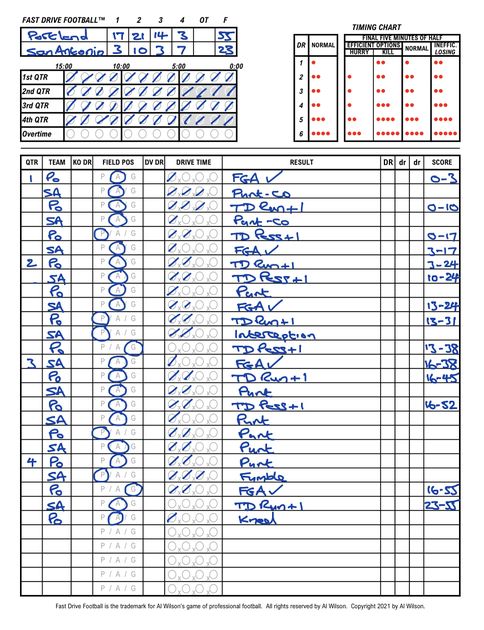 FAST DRIVE FOOTBALL™ 1 2 3 4 OT F
Portland 17 21 14 3 55
San Antonio 3 10 3 7 23
15:00 10:00 5:00 0:00
1st QTR
2nd QTR
3rd QTR
4th QTR
Overtime
TIMING CHART
FINAL FIVE MINUTES OF HALF
DR NORMAL EFFICIENT OPTIONS NORMAL INEFFIC.
HURRY KILL LOSING
1
2
3
4
5
6
QTR TEAM KO DR FIELD POS DV DR DRIVE TIME RESULT DR dr dr SCORE
1 Po P A G FGA ✓ 0-3
SA P A G Punt-CO
Po P A G TD Run+1 0-10
SA P A G Punt-CO
Po P / A / G TD Pass+1 0-17
SA P A G FGA ✓ 3-17
2 Po P A G TD Run+1 3-24
SA P A G TD Pass+1 10-24
Po P A G Punt
SA P A G FGA ✓ 13-24
Po P / A / G TD Run+1 13-31
SA P / A / G Interception
Po P / A / G TD Pass+1 13-38
3 SA P A G FGA ✓ 16-38
Po P A G TD Run+1 16-45
SA P A G Punt
Po P A G TD Pass+1 16-52
SA P A G Punt
Po P / A / G Punt
SA P A G Punt
4 Po P A G Punt
SA P / A / G Fumble
Po P / A / G FGA ✓ 16-55
SA P A G TD Run+1 23-55
Po P A G Kneel
P / A / G
P / A / G
P / A / G
P / A / G
P / A / G
Fast Drive Football is the trademark for Al Wilson's game of professional football. All rights reserved by Al Wilson. Copyright 2021 by Al Wilson.